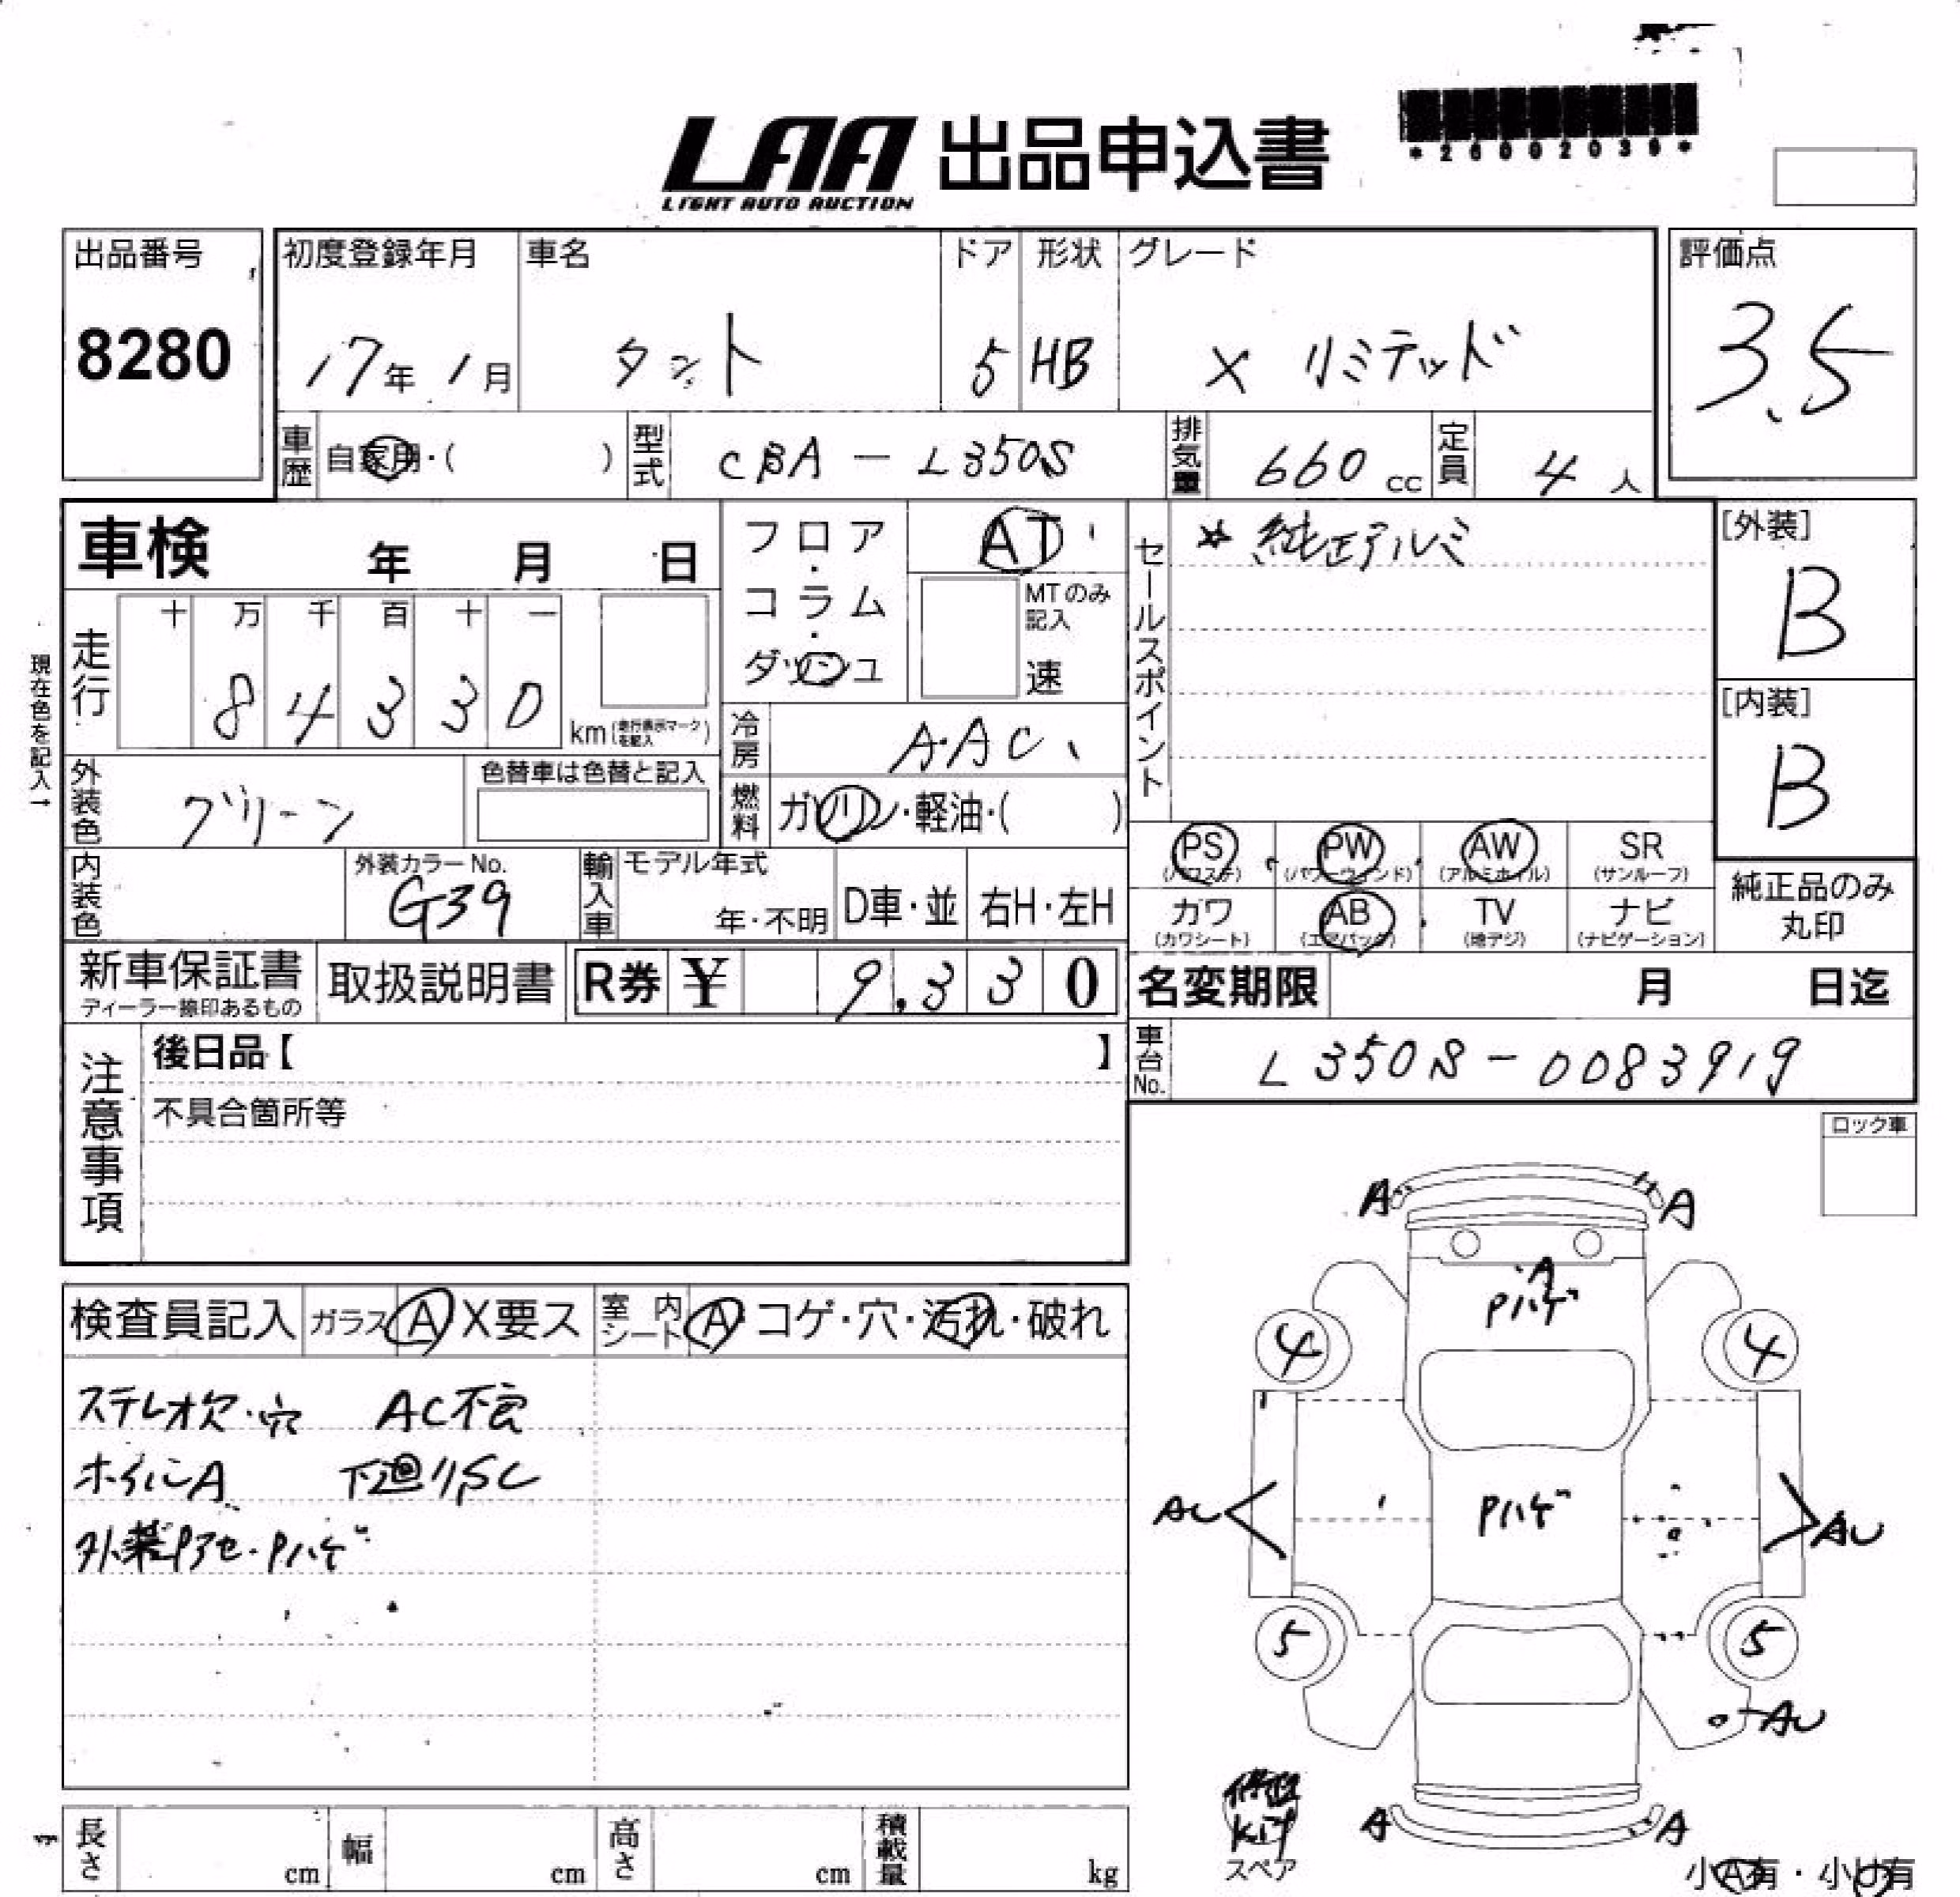 LAA 出品申込書
LIGHT AUTO AUCTION
*26002039*
出品番号
8280
初度登録年月
17年 1月
車名
タント
ドア
5
形状
HB
グレード
X リミテッド
評価点
3.5
車歴 自家用・( )
型式 CBA - L350S
排気量 660 cc
定員 4 人
車検 年 月 日
フロア・コラム・ダッシュ
AT
MTのみ記入
速
セールスポイント
☆ 純正アルミ
[外装]
B
[内装]
B
現在色を記入→
走行
十 万 千 百 十 一
8 4 3 3 0
km (走行表示マークを記入)
冷房 AAC
外装色 グリーン
色替車は色替と記入
燃料 ガソリン・軽油・( )
PS (パワステ)
PW (パワーウィンド)
AW (アルミホイル)
SR (サンルーフ)
カワ (カワシート)
AB (エアバック)
TV (地デジ)
ナビ (ナビゲーション)
純正品のみ丸印
内装色
外装カラーNo.
G39
輸入車
モデル年式
年・不明
D車・並
右H・左H
新車保証書
ディーラー捺印あるもの
取扱説明書
R券 ¥ 9,330
名変期限 月 日迄
車台No. L350S-0083919
注意事項
後日品【 】
不具合箇所等
ロック車
検査員記入
ガラス A X要ス
室内シート A・コゲ・穴・汚れ・破れ
ステレオ欠・穴 AC不良
ホイルA 下廻りSC
外装Pアセ・Pハゲ
A A
A
Pハゲ
4 4
AU Pハゲ AU
5 5
AU
A A
修理
kit
スペア
小A有・小U有
長さ cm
幅 cm
高さ cm
積載量 kg